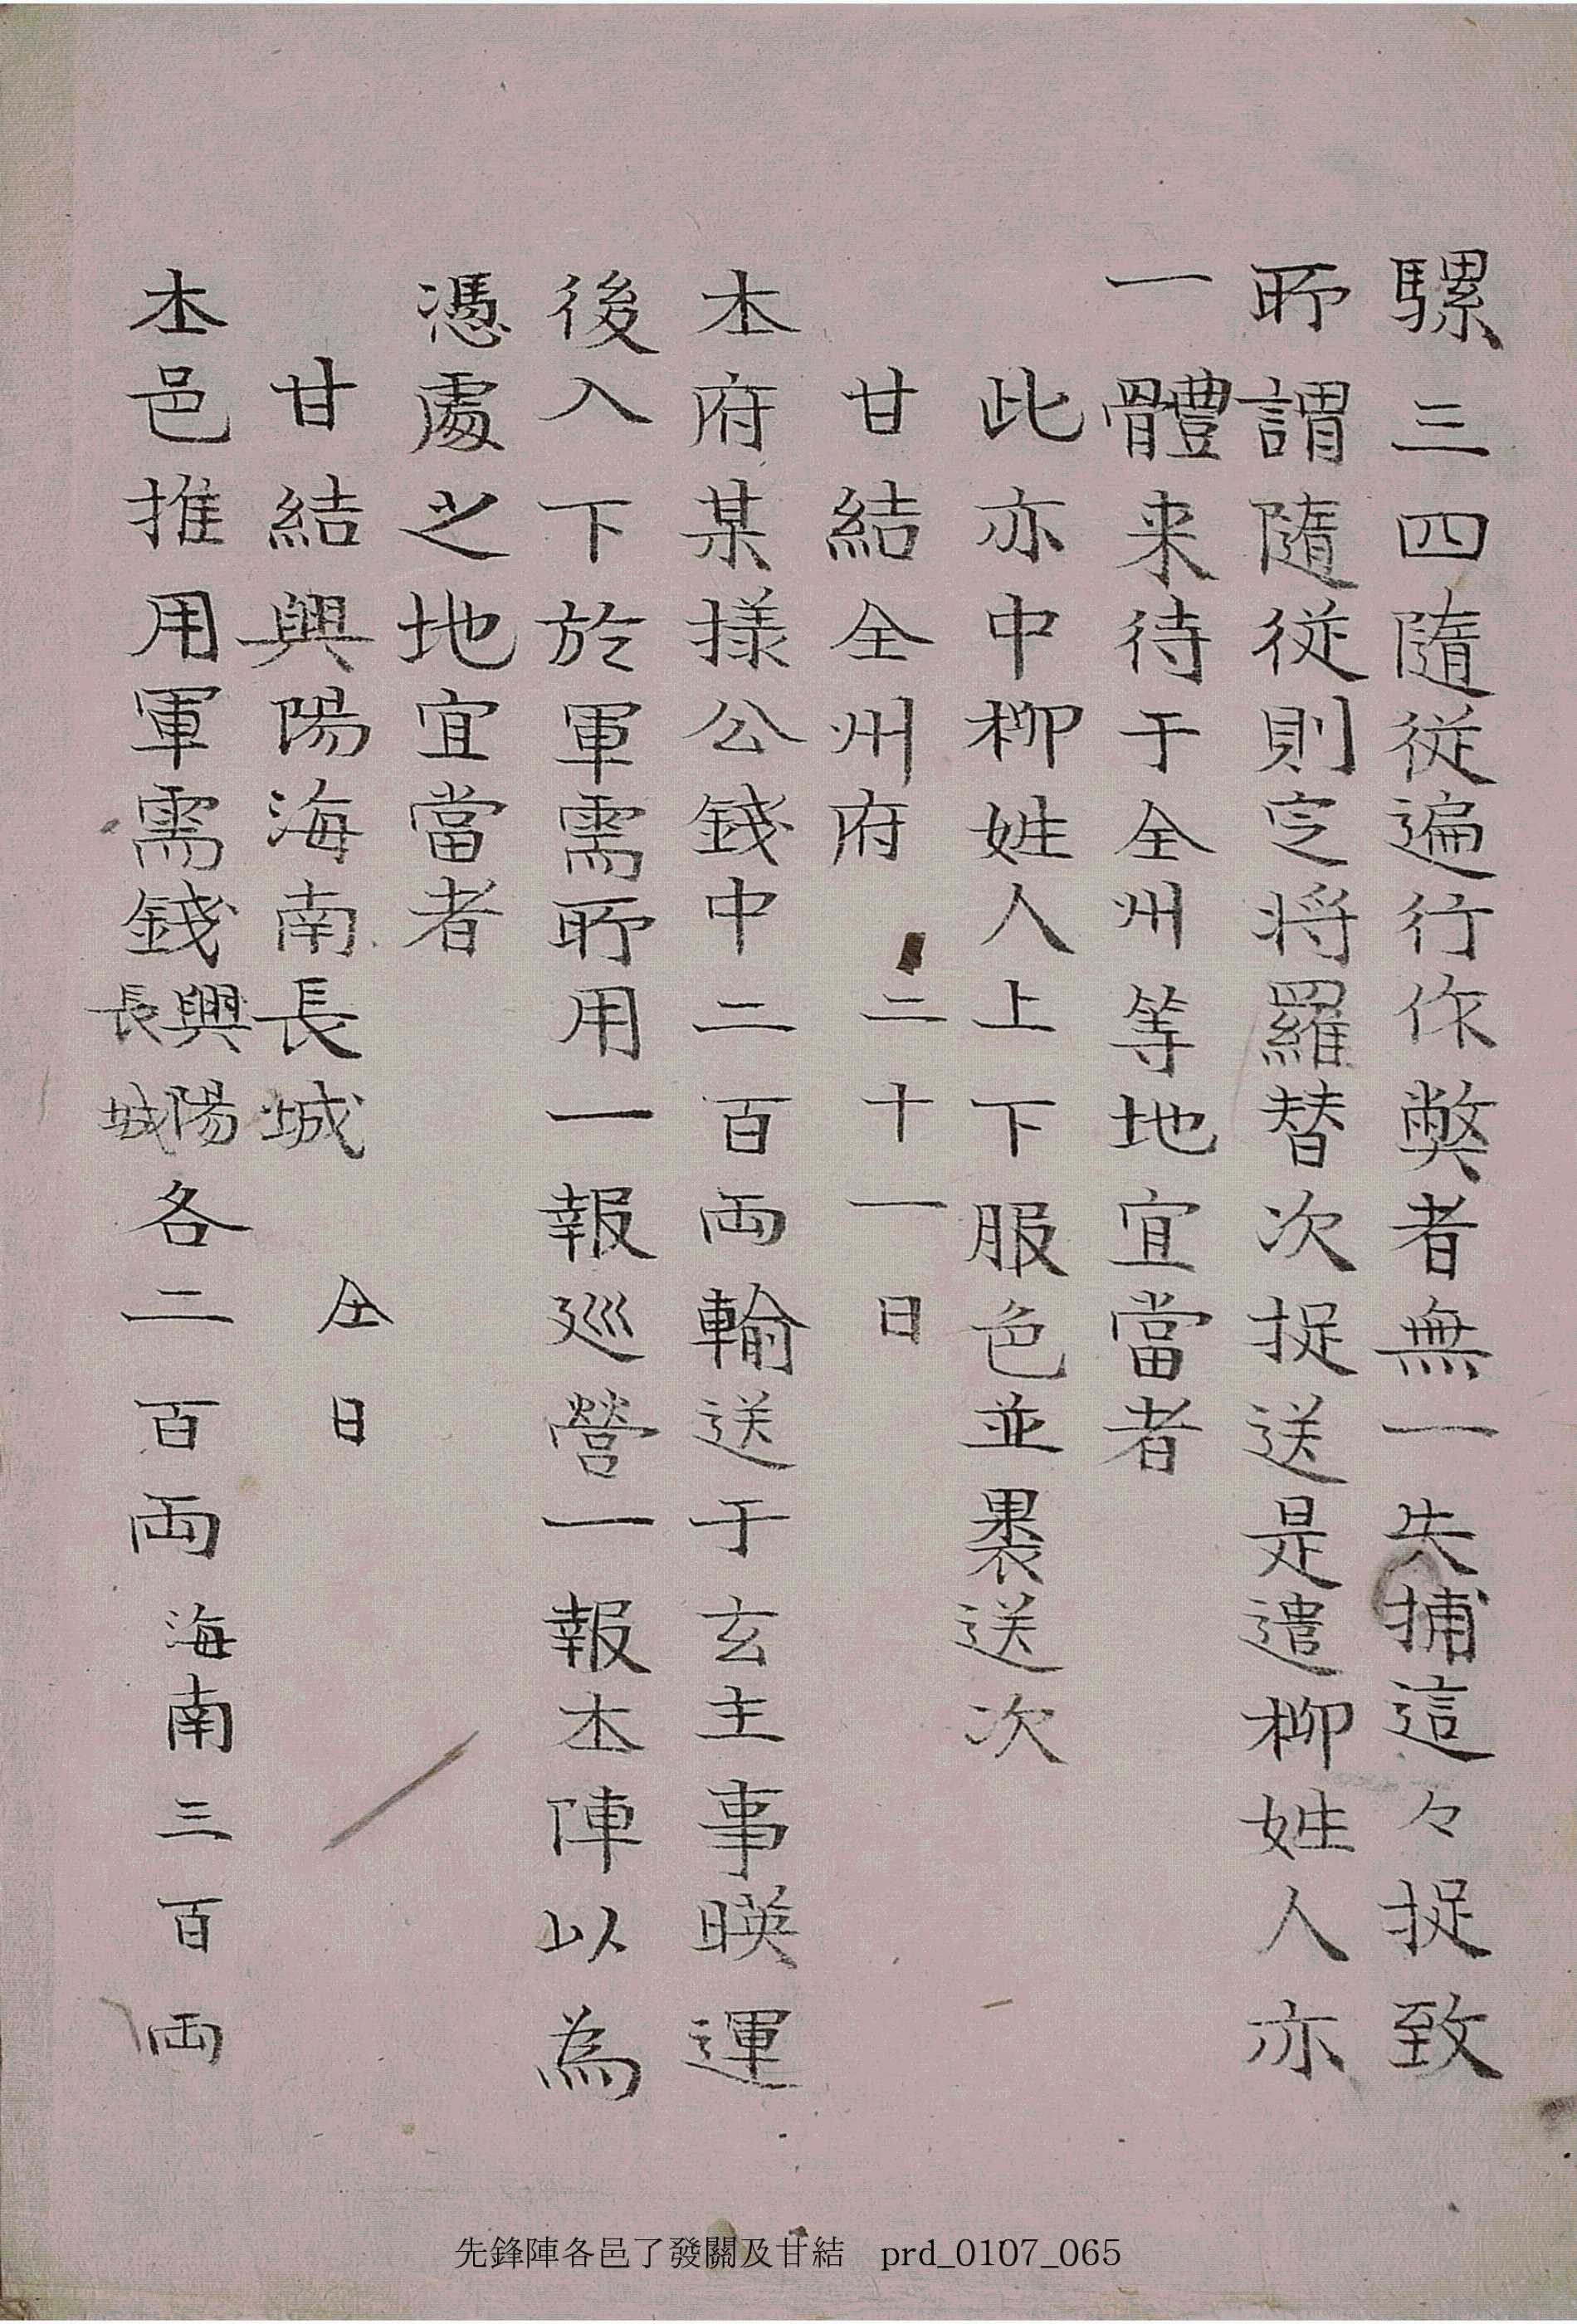 騾三四隨從遍行作弊者無一失捕這々捉致
所謂隨從則定將羅替次捉送是遣柳姓人亦
一體来待于全州等地宜當者
此亦中柳姓人上下服色並褁送次
甘結全州府 二十一日
本府某樣公錢中二百両輸送于玄主事暎運
後入下於軍需所用一報巡營一報本陣以為
憑處之地宜當者
甘結興陽海南長城 仝日
本邑推用軍需錢興陽長城各二百両海南三百両
先鋒陣各邑了發關及甘結 prd_0107_065